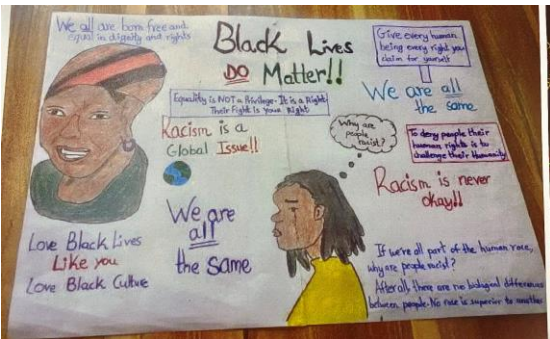 We all are born free and
equal in dignity and rights
Black Lives
DO Matter!!
Give every human
being every right you
claim for yourself
We are all
the same
Equality is NOT a Privilege. It is a Right
Their Fight Is Your Right
Racism is a
Global Issue!!
Why are
people
racist?
To deny people their
human rights is to
challenge their Humanity
Racism is never
okay!!
We are
all
the same
Love Black Lives
Like you
Love Black Culture
If we're all part of the human race,
why are people racist?
After all, there are no biological differences
between people. No race is superior to another